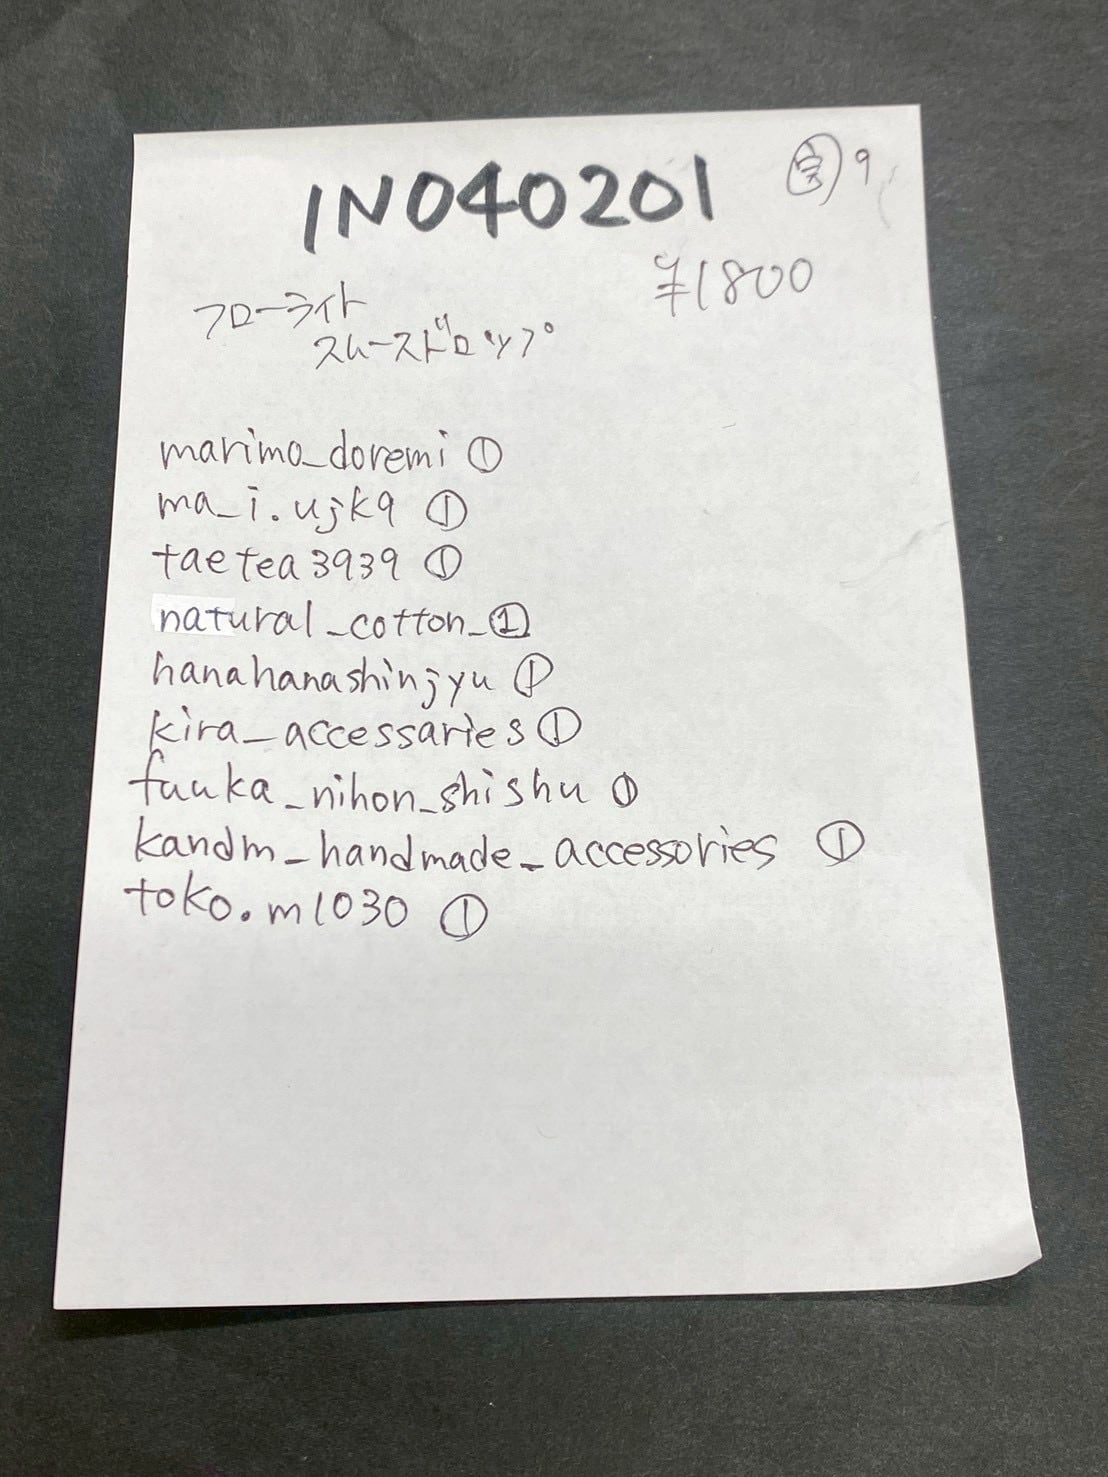 IN040201
㊢9
¥1800
フローライト
スムースドロップ
marimo_doremi ①
ma_i.ujk9 ①
taetea3939 ①
natural_cotton_①
hanahanashinjyu ①
kira_accessaries ①
fuuka_nihon_shishu ①
kandm_handmade_accessories ①
toko.m1030 ①